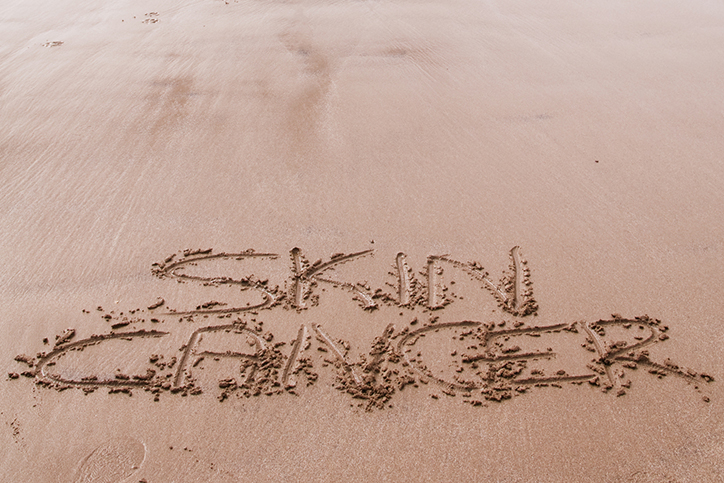 SKIN
CANCER